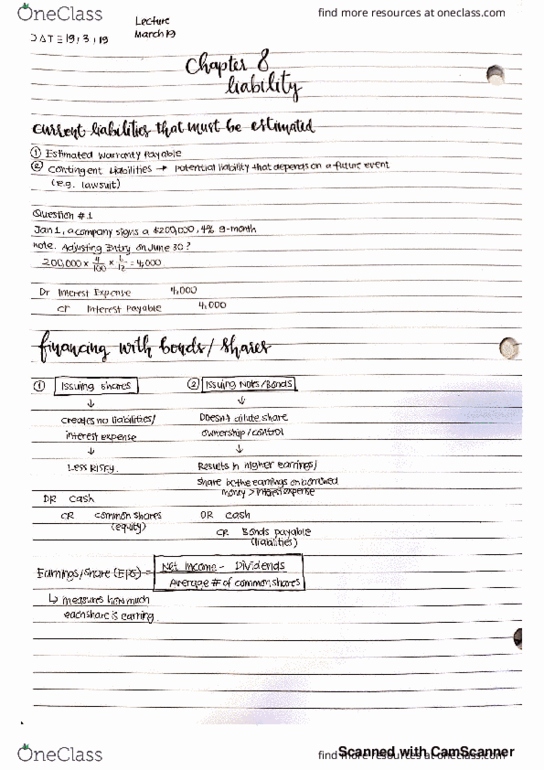 OneClass
find more resources at oneclass.com
Lecture
DATE 19, 3, 19
March 19
Chapter 8
liability
current liabilities that must be estimated
① Estimated Warranty Payable
② Contingent Liabilities → Potential liability that depends on a future event
(e.g. lawsuit)
Question #1
Jan 1, a company signs a $200,000, 4% 9-month
note. Adjusting Entry on June 30?
200,000 × 4/100 × /12 = 4,000
Dr Interest Expense 4,000
Cr Interest Payable 4,000
financing with bonds/shares
① Issuing shares
② Issuing Notes/Bonds
↓ ↓
creates no liabilities/ Doesn't dilute share
interest expense ownership/control
↓ ↓
Less RISKY Results in higher earnings/
share bc the earnings on borrowed
money > interest expense
DR cash
CR common shares DR cash
(equity)
CR Bonds payable
(liabilities)
Earnings/Share (EPS) = Net Income - Dividends
Average # of common shares
↳ measures how much
each share is earning
OneClass
find more resources at oneclass.com
Scanned with CamScanner